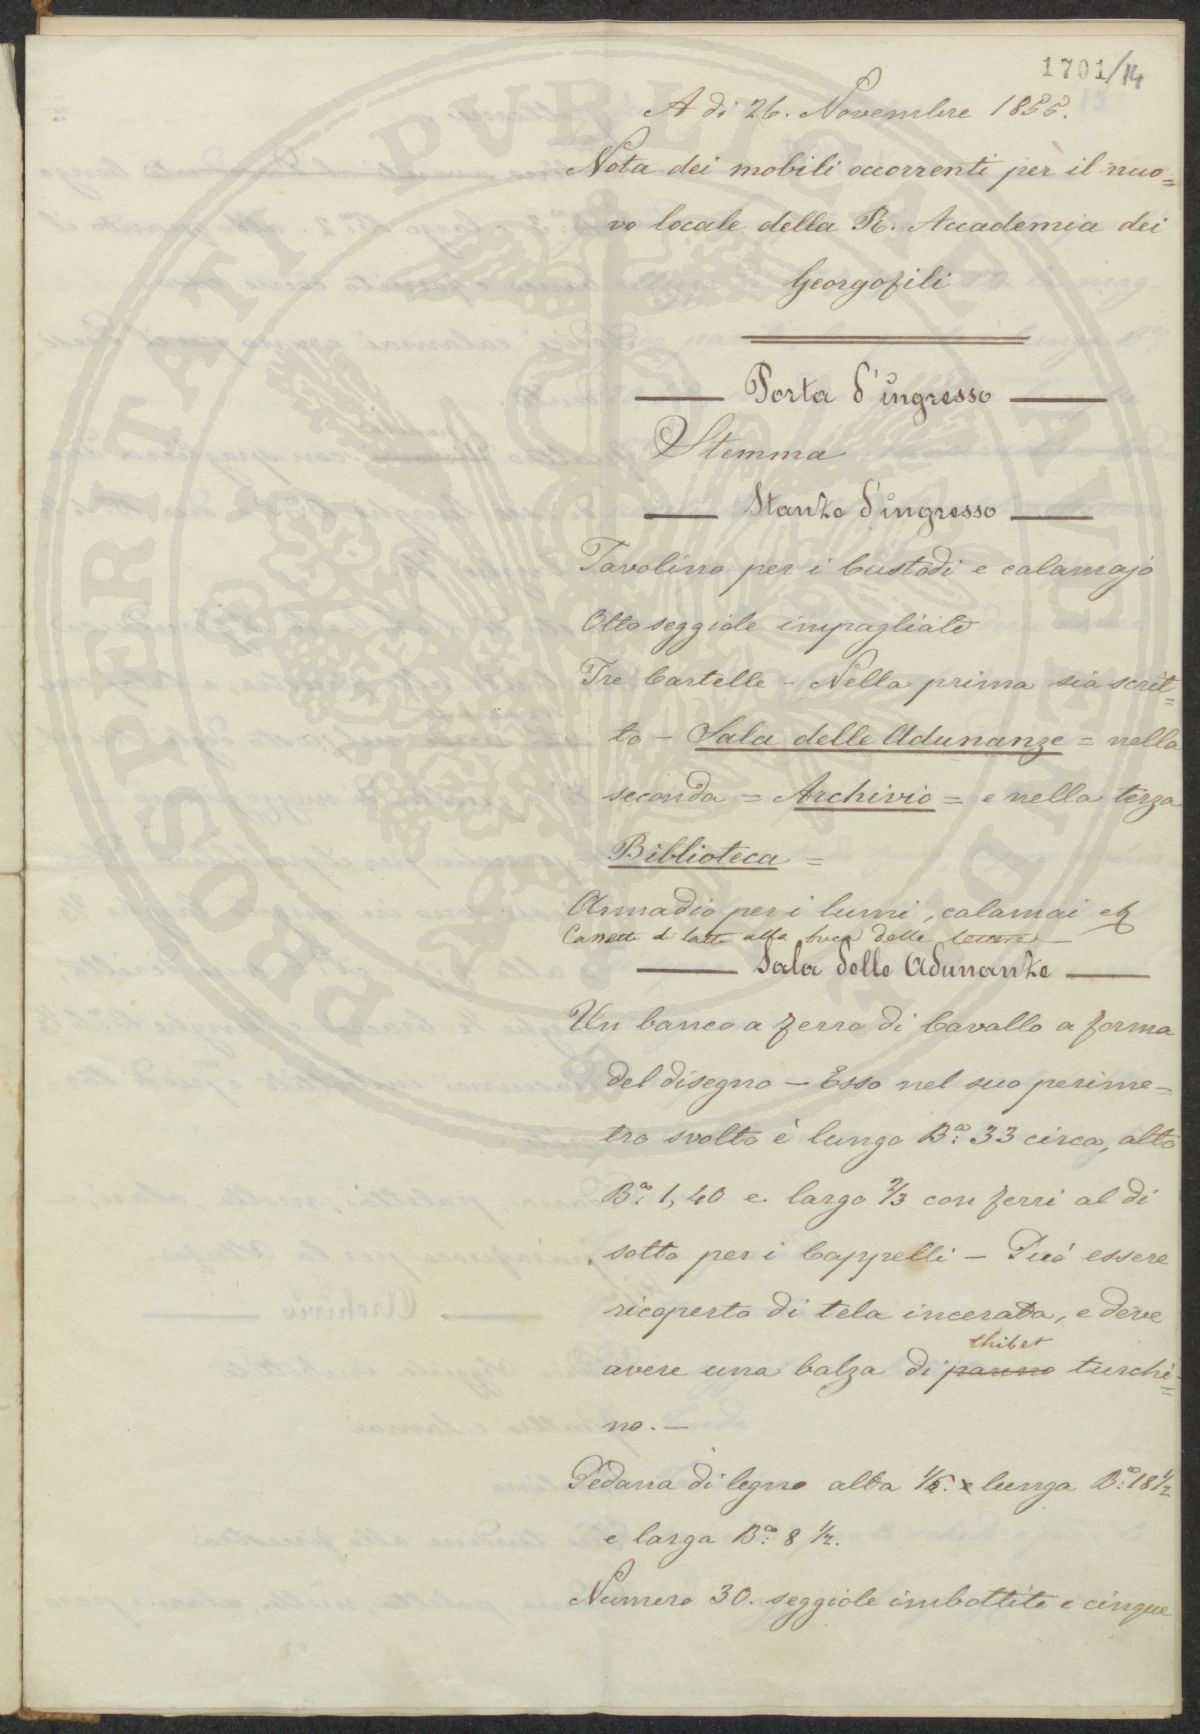 1701/14
A dì 26. Novembre 1855.
Nota dei mobili occorrenti per il nuo=
vo locale della R. Accademia dei
Georgofili
Porta d'ingresso
Stemma
Stanza d'ingresso
Tavolino per i Custodi e calamajo
Otto seggiole impagliate
Tre Cartelle - Nella prima sia scrit=
to - Sala delle Adunanze = nella
seconda = Archivio = e nella terza
Biblioteca =
Armadio per i lumi, calamai
di latta alla buca delle lettere -
Sala delle Adunanze
Un banco a ferro di Cavallo a forma
del disegno - Esso nel suo perime=
tro svolto è lungo Bª: 33 circa, alto
Bª: 1,40 e largo 2/3 con ferri al di
sotto per i Cappelli - Può essere
ricoperto di tela incerata, e deve
thibet
avere una balza di panno turchi=
no. -
Pedana di legno alta 1/5. lunga Bª: 18 1/2
e larga Bª: 8 1/2.
Numero 30. seggiole imbottite e cinque
PROSPERITATI PUBLICAE AUGENDAE